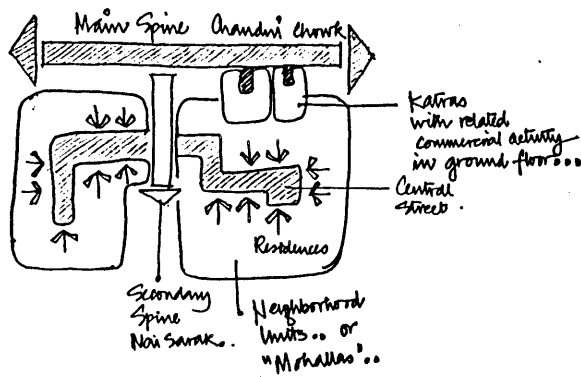 Main Spine Chandni Chowk
Katras
with related
commercial activity
in ground floor...
Central
Street.
Residences
Secondary
Spine
Nai Sarak.
Neighborhood
Units.. or
"Mohallas"..